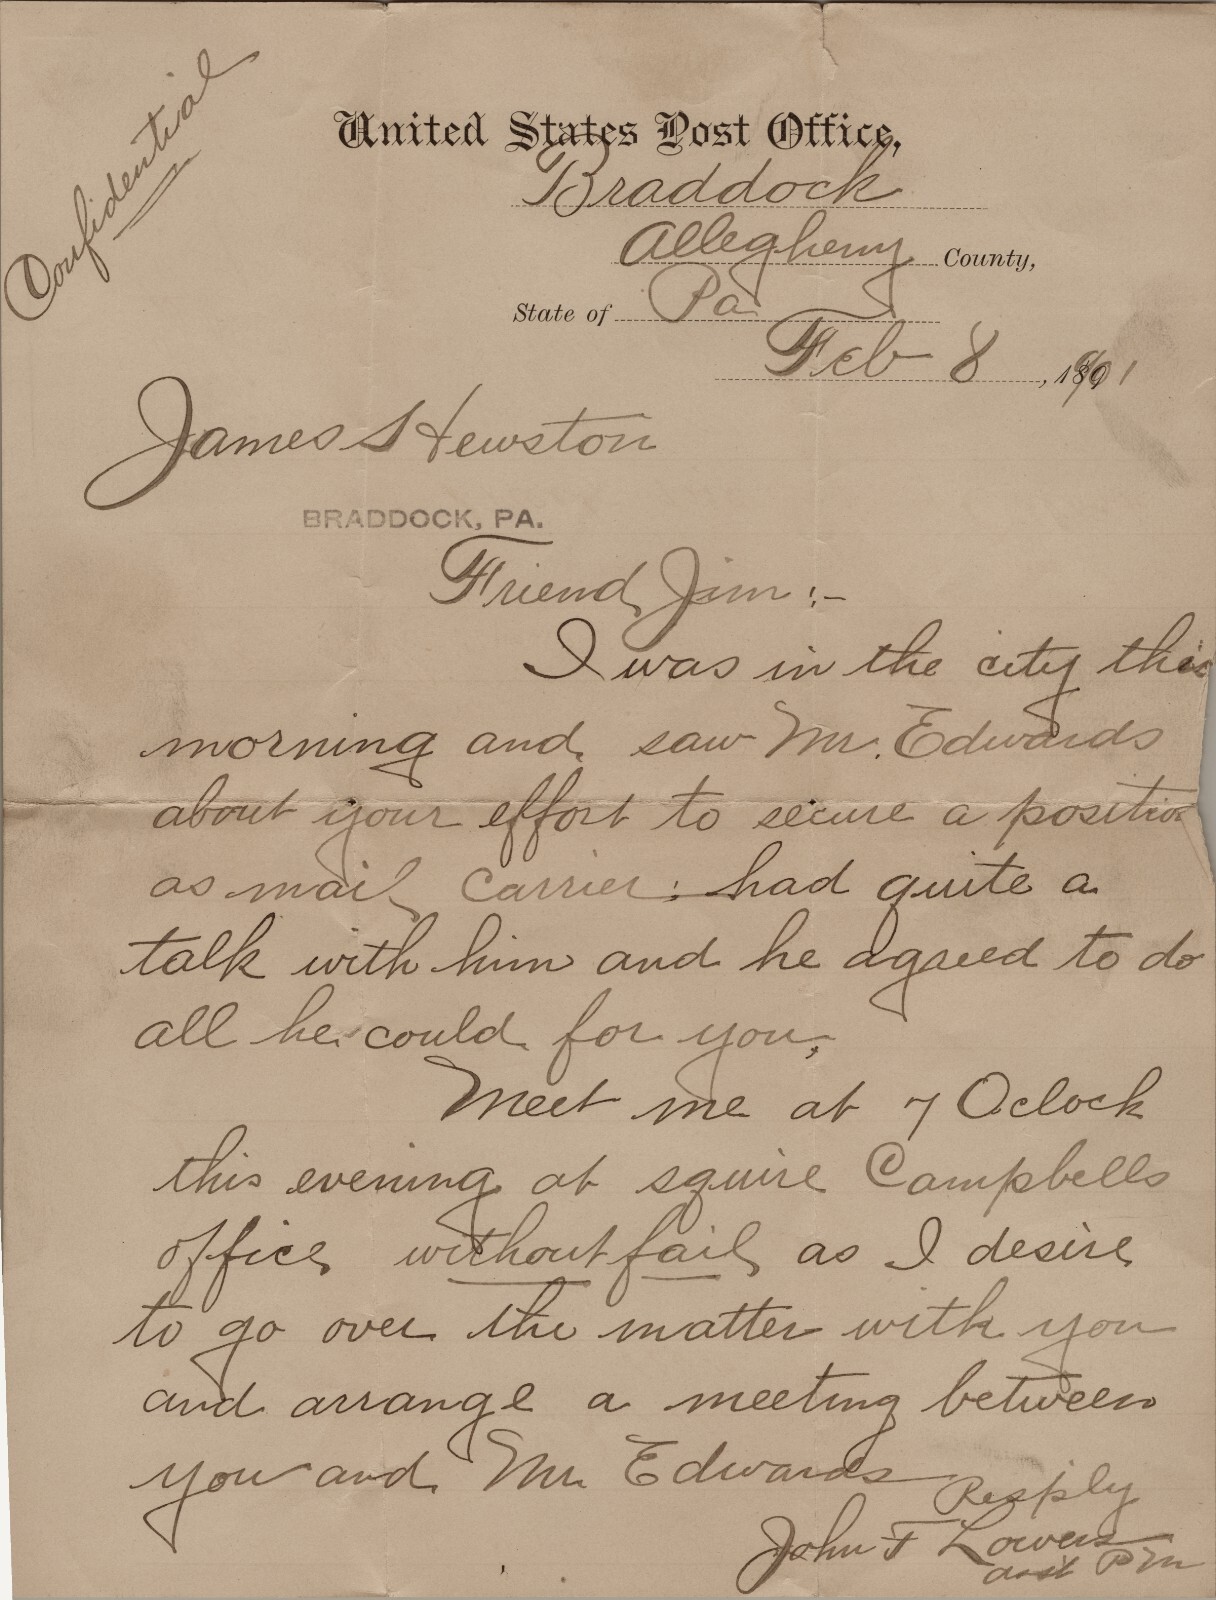 Confidential
United States Post Office,
Braddock
Allegheny County,
State of Pa
Feb 8, 1891
James S Hewston
BRADDOCK, PA.
Friend Jim :-
I was in the city this
morning and saw Mr. Edwards
about your effort to secure a position
as mail carrier: had quite a
talk with him and he agreed to do
all he could for you,
Meet me at 7 Oclock
this evening at squire Campbells
office without fail as I desire
to go over the matter with you
and arrange a meeting between
you and Mr Edwards
Resply
John F Lowers
asst PM